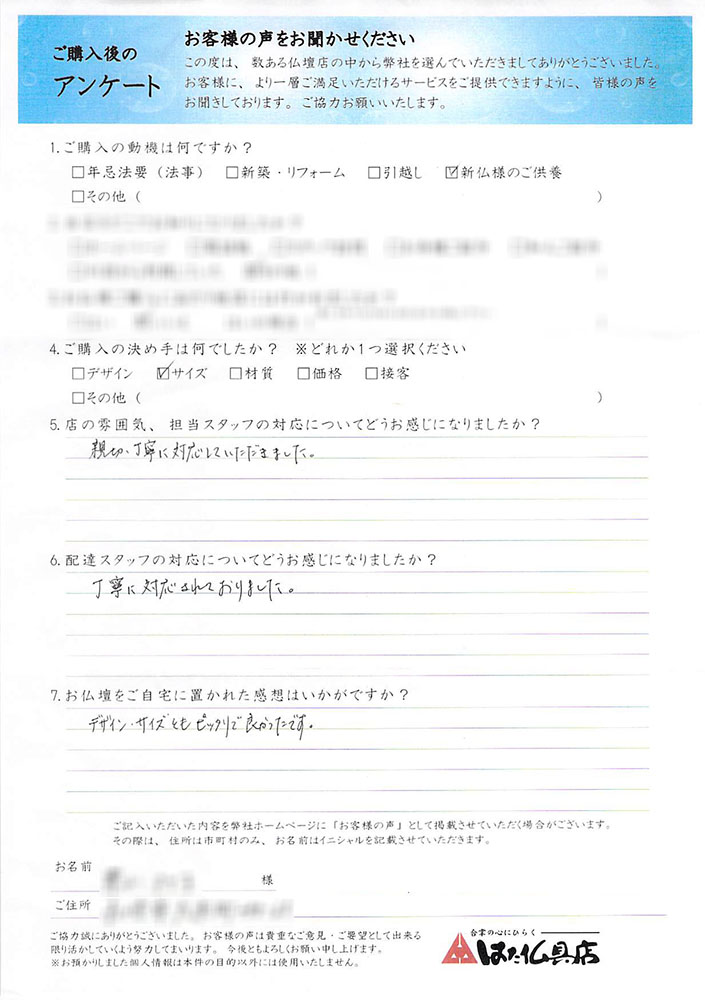 ご購入後の
アンケート
お客様の声をお聞かせください
この度は、数ある仏壇店の中から弊社を選んでいただきましてありがとうございました。
お客様に、より一層ご満足いただけるサービスをご提供できますように、皆様の声を
お聞きしております。ご協力お願いいたします。
1.ご購入の動機は何ですか?
□年忌法要(法事) □新築・リフォーム □引越し ☑新仏様のご供養
□その他( )
4.ご購入の決め手は何でしたか? ※どれか1つ選択ください
□デザイン ☑サイズ □材質 □価格 □接客
□その他( )
5.店の雰囲気、担当スタッフの対応についてどうお感じになりましたか?
親切、丁寧に対応していただきました。
6.配達スタッフの対応についてどうお感じになりましたか?
丁寧に対応されておりました。
7.お仏壇をご自宅に置かれた感想はいかがですか?
デザイン・サイズともピッタリで良かったです。
ご記入いただいた内容を弊社ホームページに「お客様の声」として掲載させていただく場合がございます。
その際は、住所は市町村のみ、お名前はイニシャルを記載させていただきます。
お名前 様
ご住所
ご協力誠にありがとうございました。お客様の声は貴重なご意見・ご要望として出来る
限り活かしていくよう努力してまいります。今後ともよろしくお願い申し上げます。
※お預かりしました個人情報は本件の目的以外には使用いたしません。
合掌の心にひらく
はた仏具店